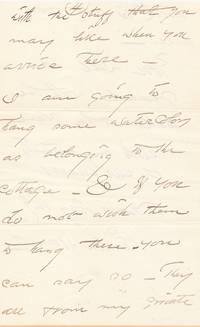 with the stuff that you
may like when you
arrive there —
I am going to
hang some water color
as belonging to the
cottage — & if you
do not wish them
to hang there — you
can say so — They
are from my private